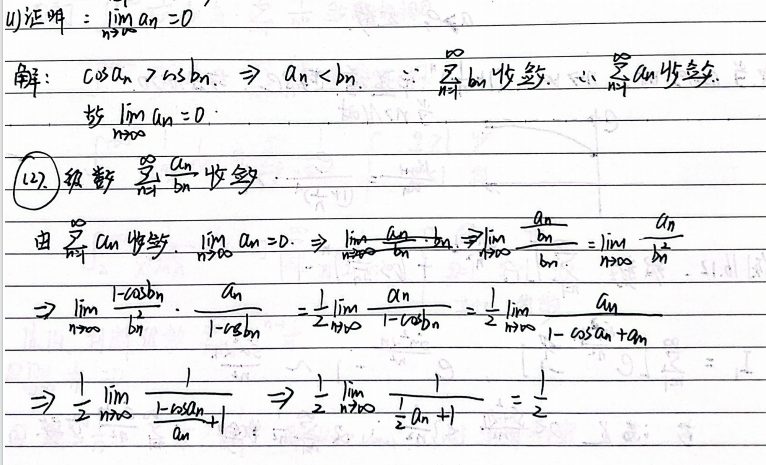 (1)证明：lim_{n→∞} an = 0
解： cosan > cosbn. ⇒ an < bn. ∵ ∑_{n=1}^{∞} bn 收敛. ∴ ∑_{n=1}^{∞} an 收敛.
故 lim_{n→∞} an = 0.
(2). 级数 ∑_{n=1}^{∞} an/bn 收敛
由 ∑_{n=1}^{∞} an 收敛. lim_{n→∞} an = 0. ⇒ lim_{n→∞} (an/bn)/bn = lim_{n→∞} an/bn²
⇒ lim_{n→∞} (1-cosbn)/bn² · an/(1-cosbn) = 1/2 lim_{n→∞} an/(1-cosbn) = 1/2 lim_{n→∞} an/(1-cosan+an)
⇒ 1/2 lim_{n→∞} 1/((1-cosan)/an+1) ⇒ 1/2 lim_{n→∞} 1/(1/2 an+1) = 1/2